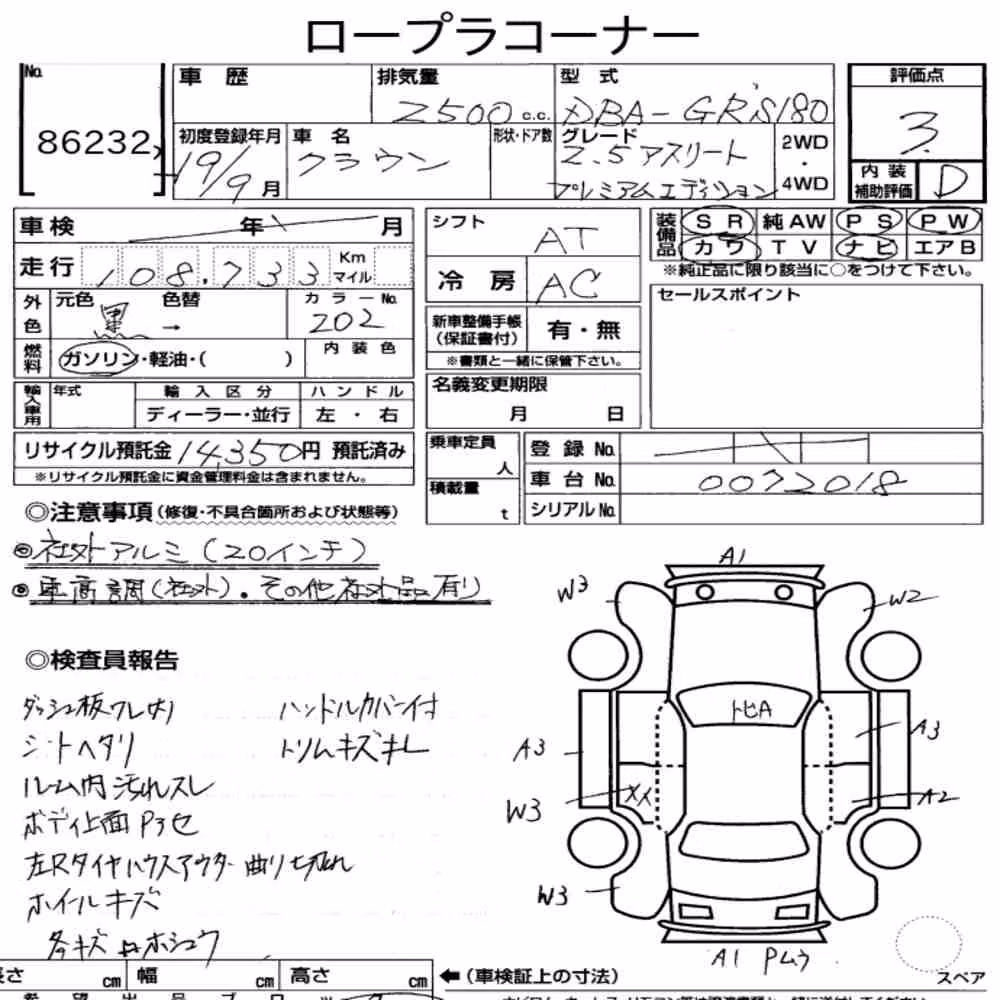 ロープラコーナー
No. 86232
車歴
排気量 2500 c.c.
型式 DBA-GRS180
評価点 3.
初度登録年月 19/9月
車名 クラウン
形状・ドア数
グレード 2.5アスリート
プレミアムエディション
2WD・4WD
内装補助評価 D
車検 年 月
走行 108,733 Km マイル
外色 元色 黒 色替 →
カラーNo. 202
燃料 ガソリン・軽油・( )
内装色
輸入車用 年式
輸入区分 ディーラー・並行
ハンドル 左・右
リサイクル預託金 14,350円 預託済み
※リサイクル預託金に資金管理料金は含まれません。
シフト AT
冷房 AC
新車整備手帳(保証書付) 有・無
※書類と一緒に保管下さい。
名義変更期限
月 日
乗車定員 人
積載量 t
装備品 SR 純AW PS PW
カワ TV ナビ エアB
※純正品に限り該当に○をつけて下さい。
セールスポイント
登録No.
車台No. 0072018
シリアルNo.
◎注意事項(修復・不具合箇所および状態等)
◎社外アルミ(20インチ)
◎車高調(社外)・その他社外品有り
◎検査員報告
ダッシュ板ワレ有 ハンドルカバー付
シートヘタリ トリムキズキレ
ルーム内汚れスレ
ボディ上面Pろセ
左Rタイヤハウスアウター曲り切れ
ホイールキズ
各キズ 凹 ホシュウ
A1
W3
W2
トビA
A3
A3
W3
XX
A2
W3
A1 Pムラ
スペア
長さ cm 幅 cm 高さ cm
←(車検証上の寸法)